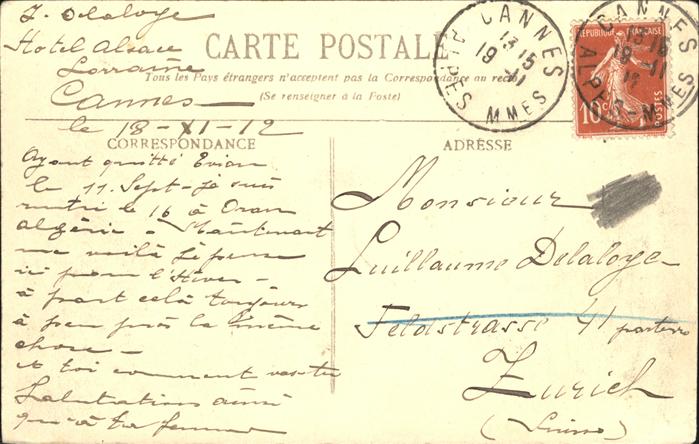 J. Delaloye
Hotel Alsace
Lorraine
Cannes
le 18-XI-12
CARTE POSTALE
Tous les Pays étrangers n'acceptent pas la Correspondance au recto
(Se renseigner à la Poste)
CORRESPONDANCE
Ayant quitté Evian
le 11 Sept-je suis
rentré le 16 à Oran
algérie - Maintenant
me voilà je pense
ici pour l'hiver -
à part celà toujours
à peu près la même
chose -
et toi comment vas-tu
Salutations ainsi
qu'à ta femme
CANNES
13 15
19 - 11
ALPES MMES
REPUBLIQUE FRANÇAISE
10 c
POSTES
CANNES
19 - 11
ALPES-MMES
ADRESSE
Monsieur
Guillaume Delaloye
Feldstrasse 41 parterre
Zurich
(Suisse)